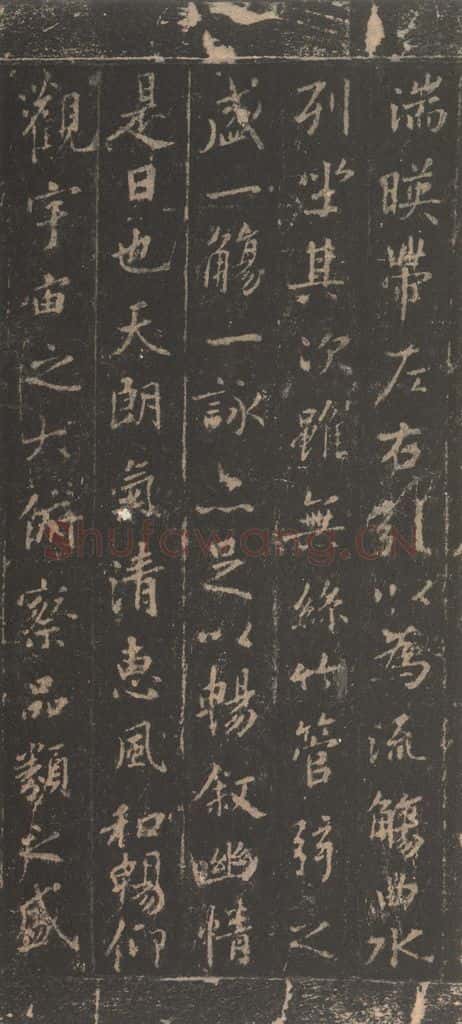 湍暎帶左右引以為流觴曲水
列坐其次雖無絲竹管弦之
盛一觴一詠亦足以暢叙幽情
是日也天朗氣清惠風和暢仰
觀宇宙之大俯察品類之盛
Shufawang.CN